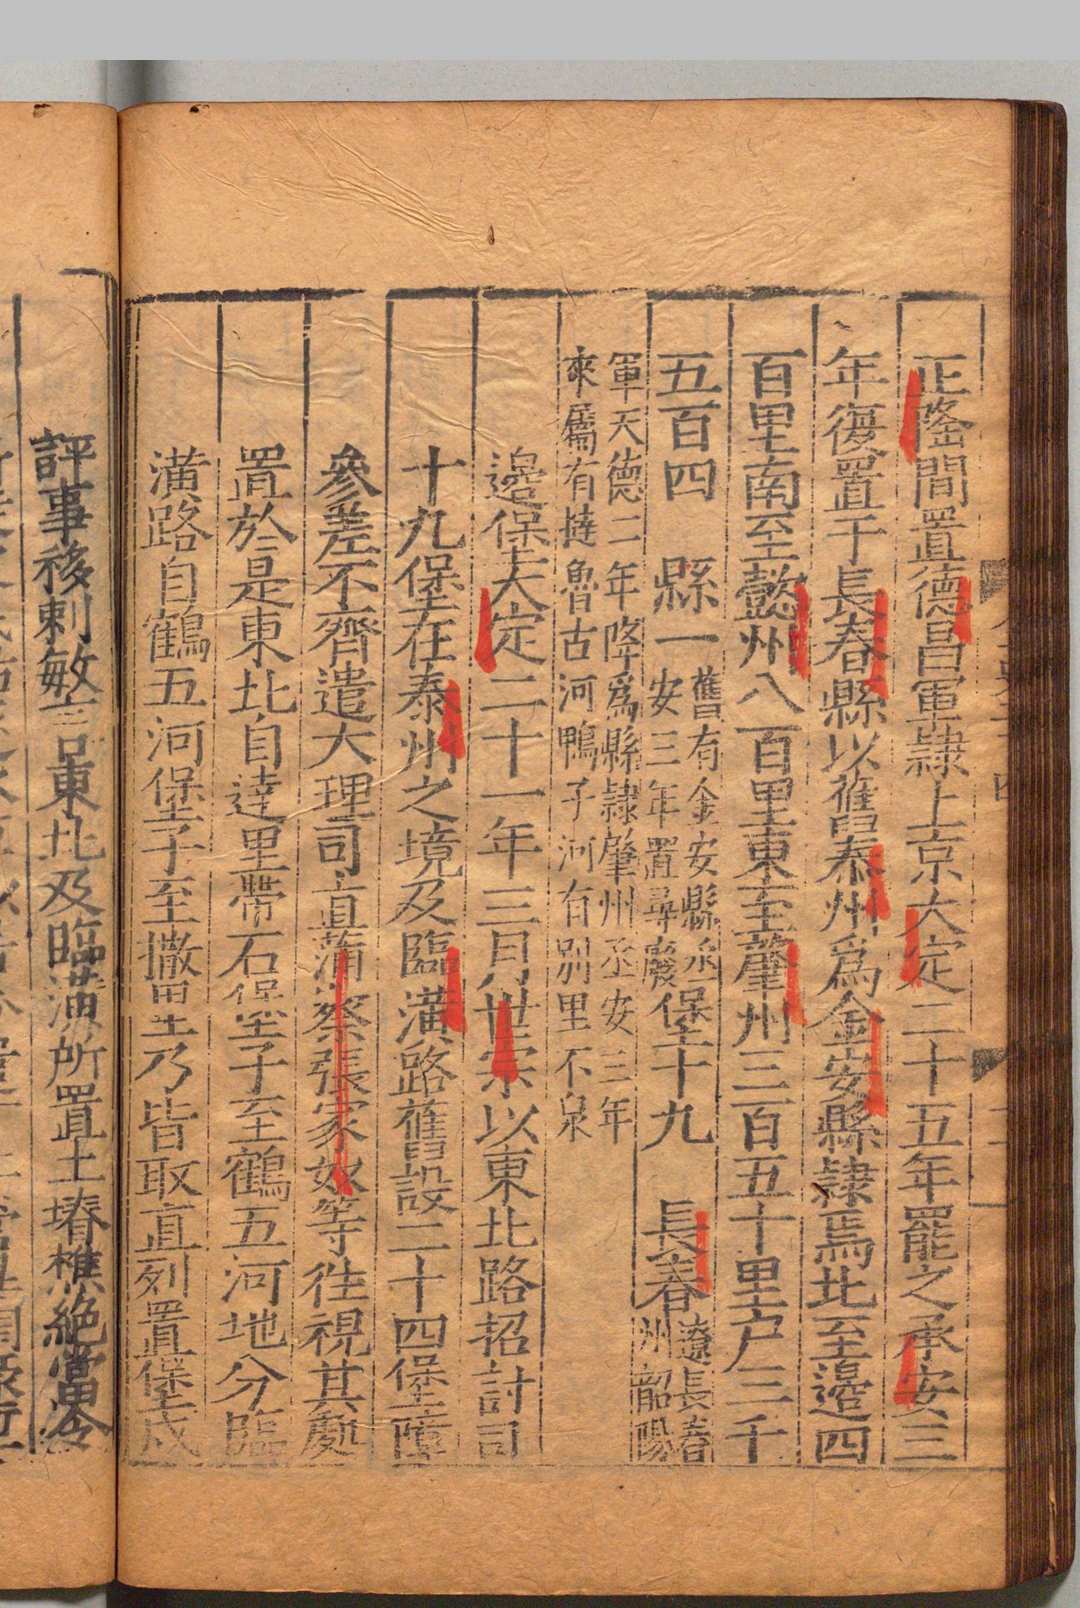 正隆間置德昌軍隷上京大定二十五年罷之承安三
年復置于長春縣以舊泰州爲金安縣隷焉北至邉四
百里南至懿州八百里東至肇州三百五十里户三千
五百四 縣一舊有金安縣承安三年置尋廢堡十九 長春遼長春州韶陽
軍天德二年降爲縣隷肇州承安三年
來屬有撻魯古河鴨子河有别里不泉
邉堡大定二十一年三月世宗以東北路招討司
十九堡在泰州之境及臨潢路舊設二十四堡障
參差不齊遣大理司直蒲察張家奴等徃視其處
置於是東北自達里帶石堡子至鶴五河地分臨
潢路自鶴五河堡子至撒里乃皆取直列置堡戍
評事移剌敏言東北及臨潢所置土塉樵絶當令